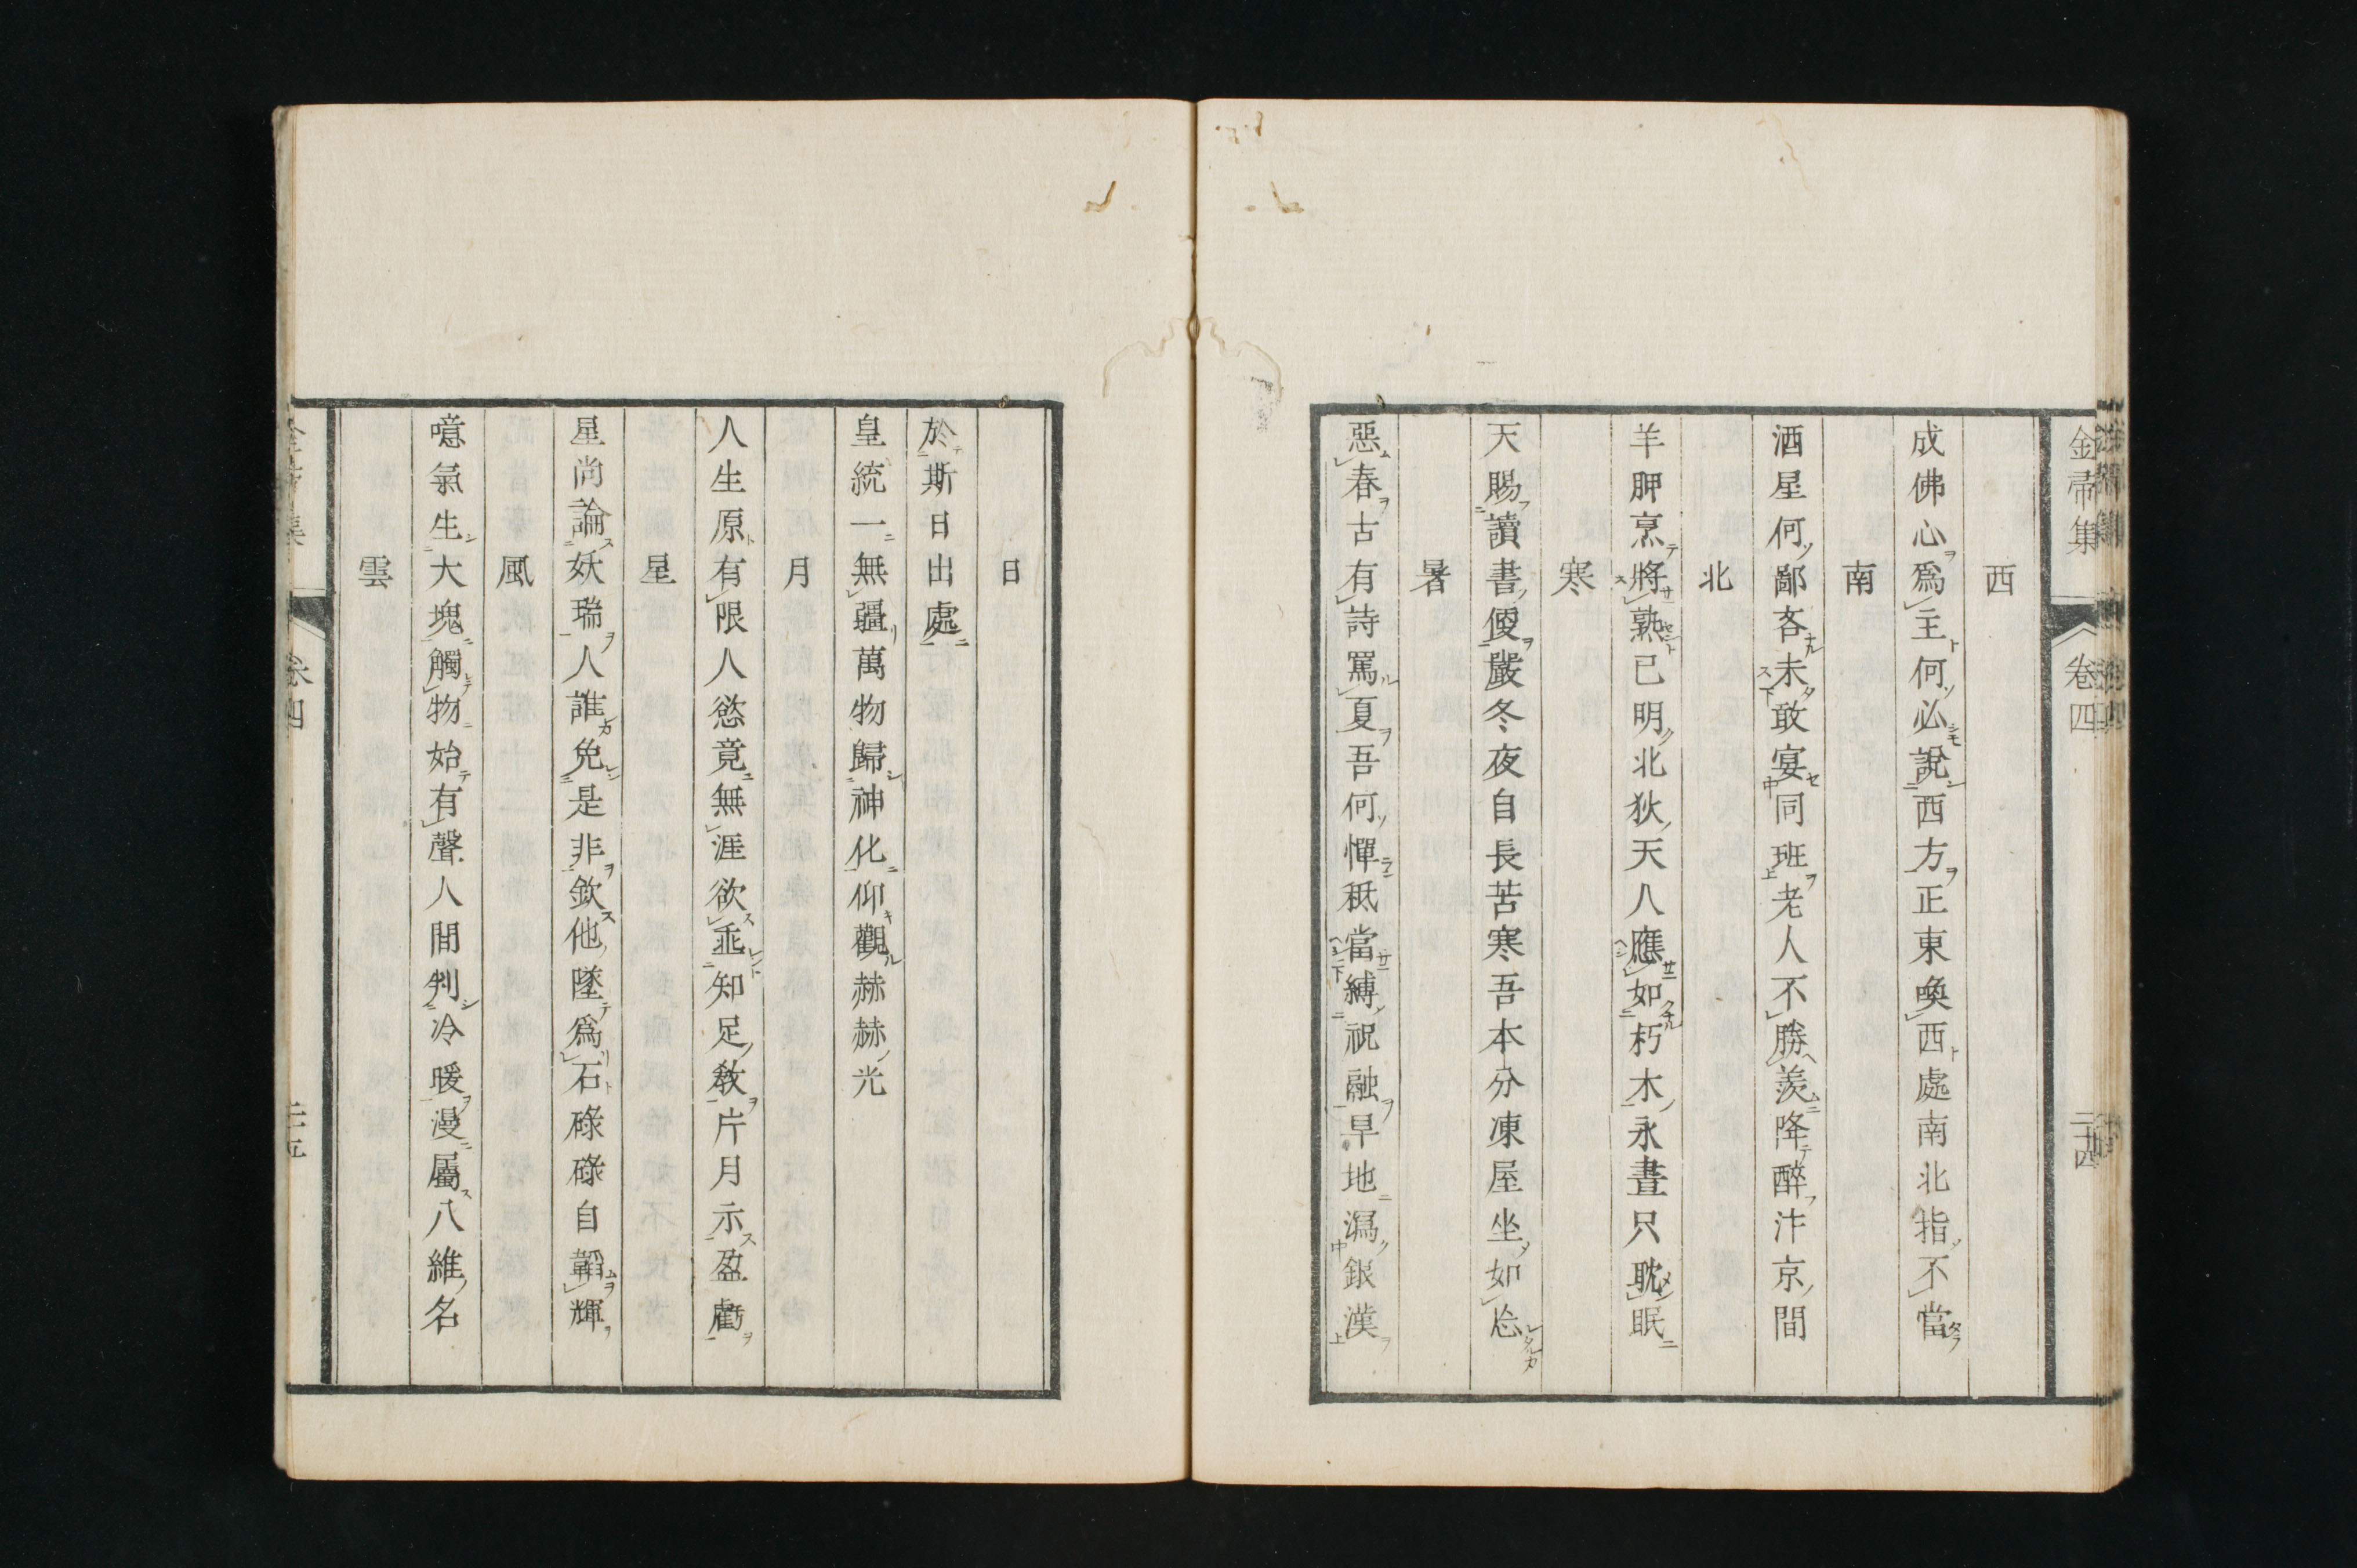 金帚集 卷四 二十四
西
成佛心爲主何必說西方正東喚西處南北指不當
南
酒星何鄙吝未敢宴同班老人不勝羨降醉汴京間
北
羊胛烹將熟已明北狄天人應如朽木永晝只耽眠
寒
天賜讀書便嚴冬夜自長苦寒吾本分凍屋坐如㤀
暑
惡春古有詩罵夏吾何憚秪當縛祝融早地瀉銀漢
日
於斯日出處
皇統一無疆萬物歸神化仰觀赫赫光
月
人生原有限人慾竟無涯欲乖知足敎片月示盈虧
星
星尚論妖瑞人誰免是非欽他墜爲石碌碌自韜輝
風
噫氣生大塊觸物始有聲人間判冷暖漫屬八維名
雲
卷四